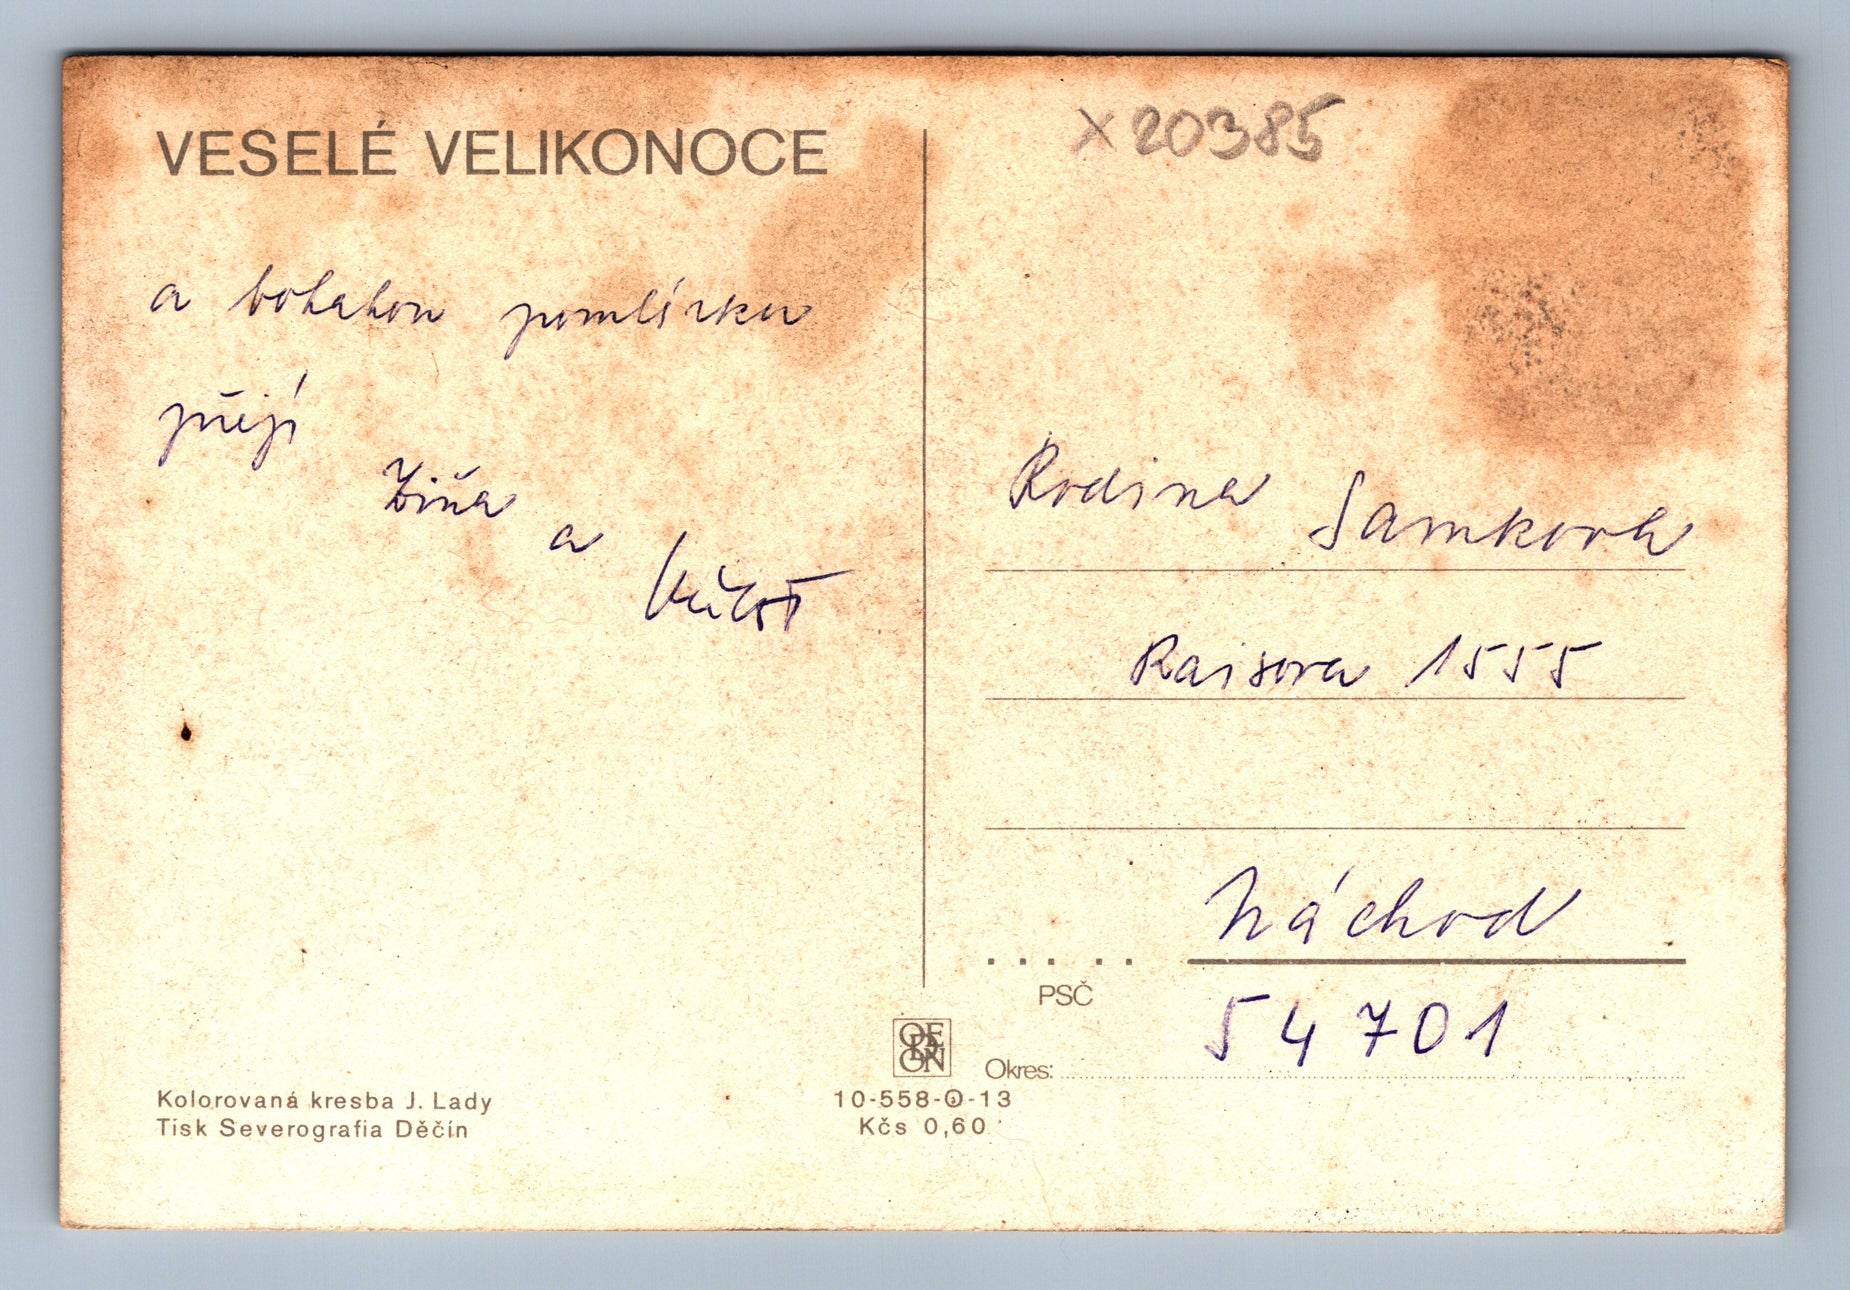 VESELÉ VELIKONOCE
x 20385
a bohatou pomlázku
přejí
Ziňa
a
Miloš
Rodina Samkova
Raisova 1555
Náchod
PSČ
54701
ODEON
Okres:
Kolorovaná kresba J. Lady
Tisk Severografia Děčín
10-558-0-13
Kčs 0,60